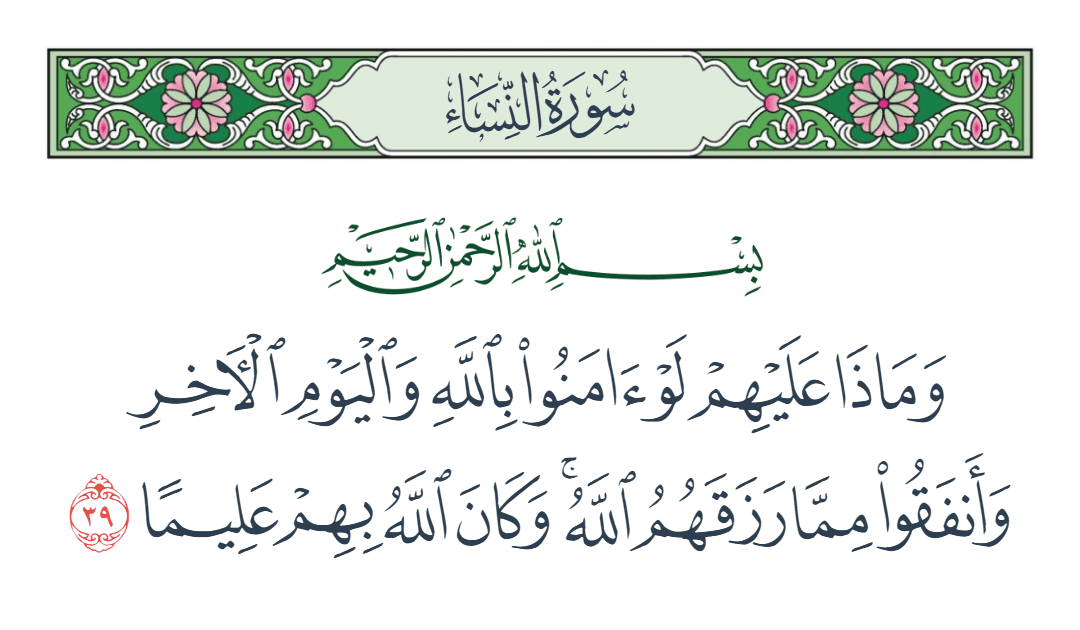 سُورَةُ النِّسَاءِ
بِسْمِ ٱللَّهِ ٱلرَّحْمَٰنِ ٱلرَّحِيمِ
وَمَاذَا عَلَيْهِمْ لَوْ ءَامَنُوا۟ بِٱللَّهِ وَٱلْيَوْمِ ٱلْـَٔاخِرِ
وَأَنفَقُوا۟ مِمَّا رَزَقَهُمُ ٱللَّهُ ۚ وَكَانَ ٱللَّهُ بِهِمْ عَلِيمًا ٣٩